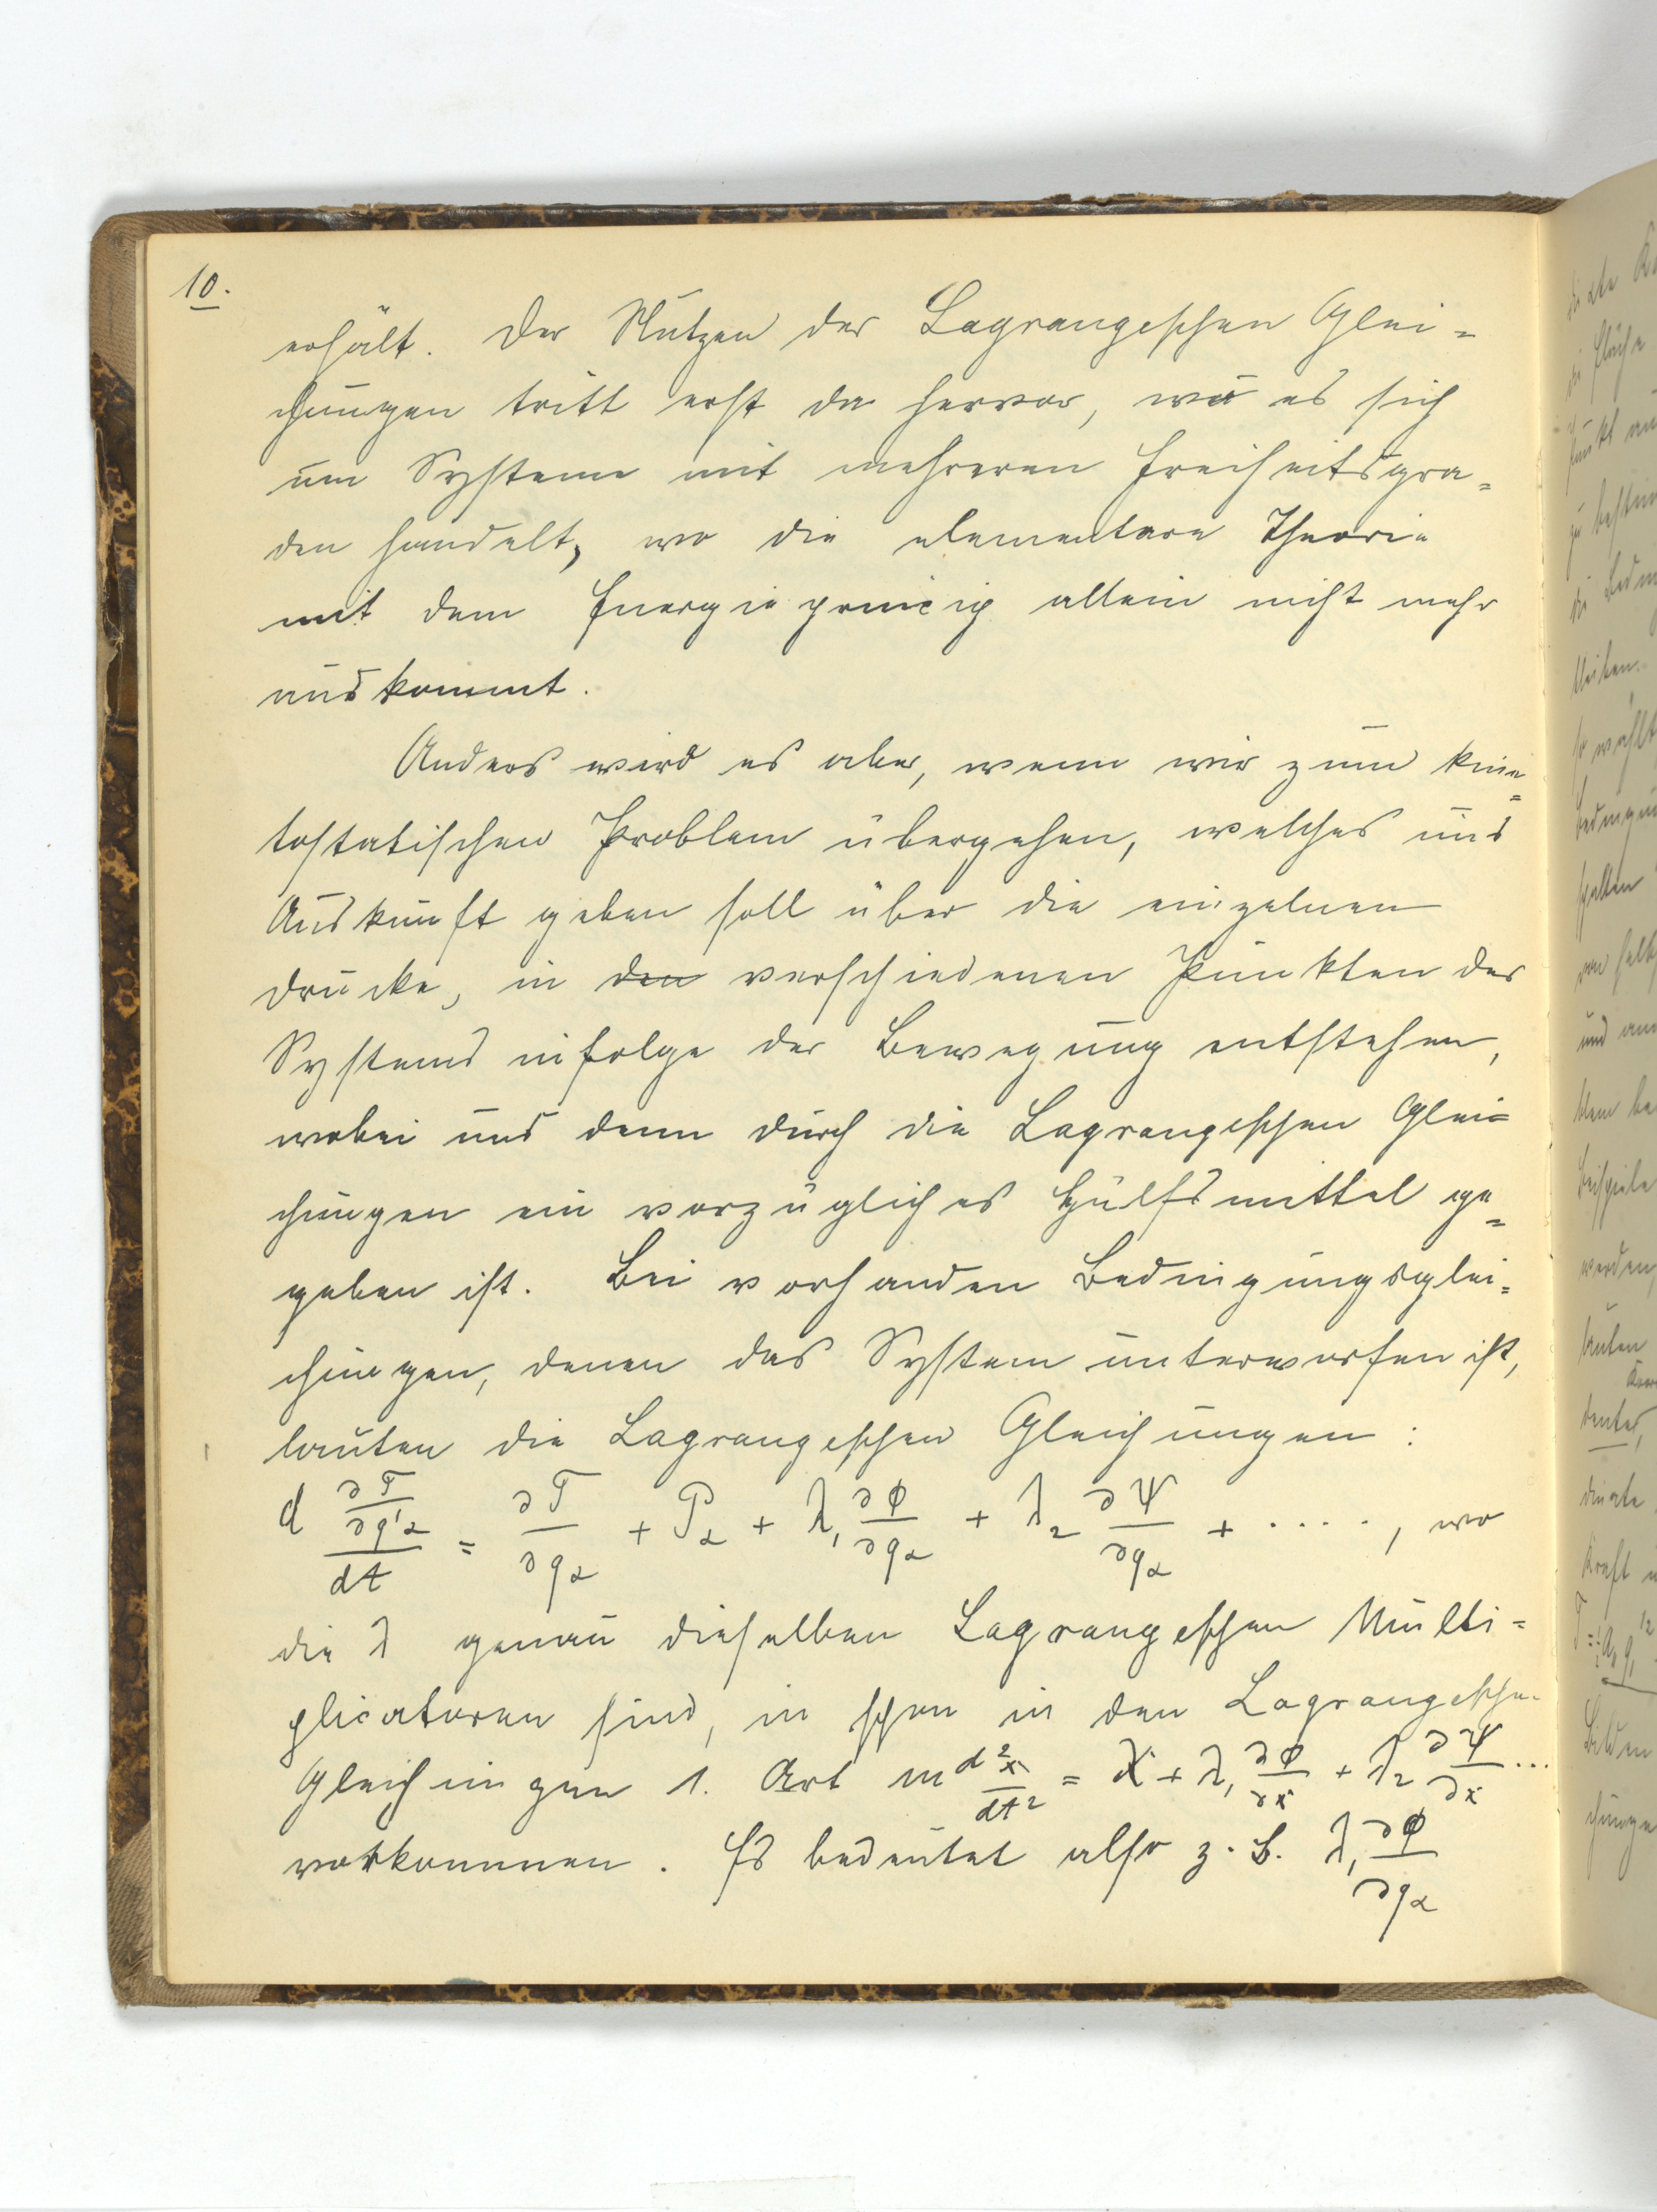 10.
erhält. Der Nutzen der Lagrangeschen Glei=
chungen tritt erst da hervor, wo es sich
um Systeme mit mehreren Freiheitsgra=
den handelt, wo die elementare Theorie
mit dem Energieprincip allein nicht mehr
auskommt.
Anders wird es aber, wenn wir zum kine=
tostatischen Problem übergehen, welches uns
Auskunft geben soll über die einzelnen
Drucke, in den verschiedenen Punkten des
Systems infolge der Bewegung entstehen,
wobei uns denn durch die Lagrangeschen Glei=
chungen ein vorzügliches Hülfsmittel ge=
geben ist. Bei vorhanden Bedingungsglei=
chungen, denen das System unterworfen ist,
lauten die Lagrangeschen Gleichungen:
d ∂T/∂q'α / dt = ∂T/∂qα + Pα + λ₁ ∂Φ/∂qα + λ₂ ∂Ψ/∂qα + ....., wo
die λ genau dieselben Lagrangeschen Multi=
plicatoren sind, die schon in den Lagrangeschen
Gleichungen 1. Art m d²x/dt² = X + λ₁ ∂Φ/∂x + λ₂ ∂Ψ/∂x ...
vorkommen. Es bedeutet also z. B. λ₁ ∂Φ/∂qα